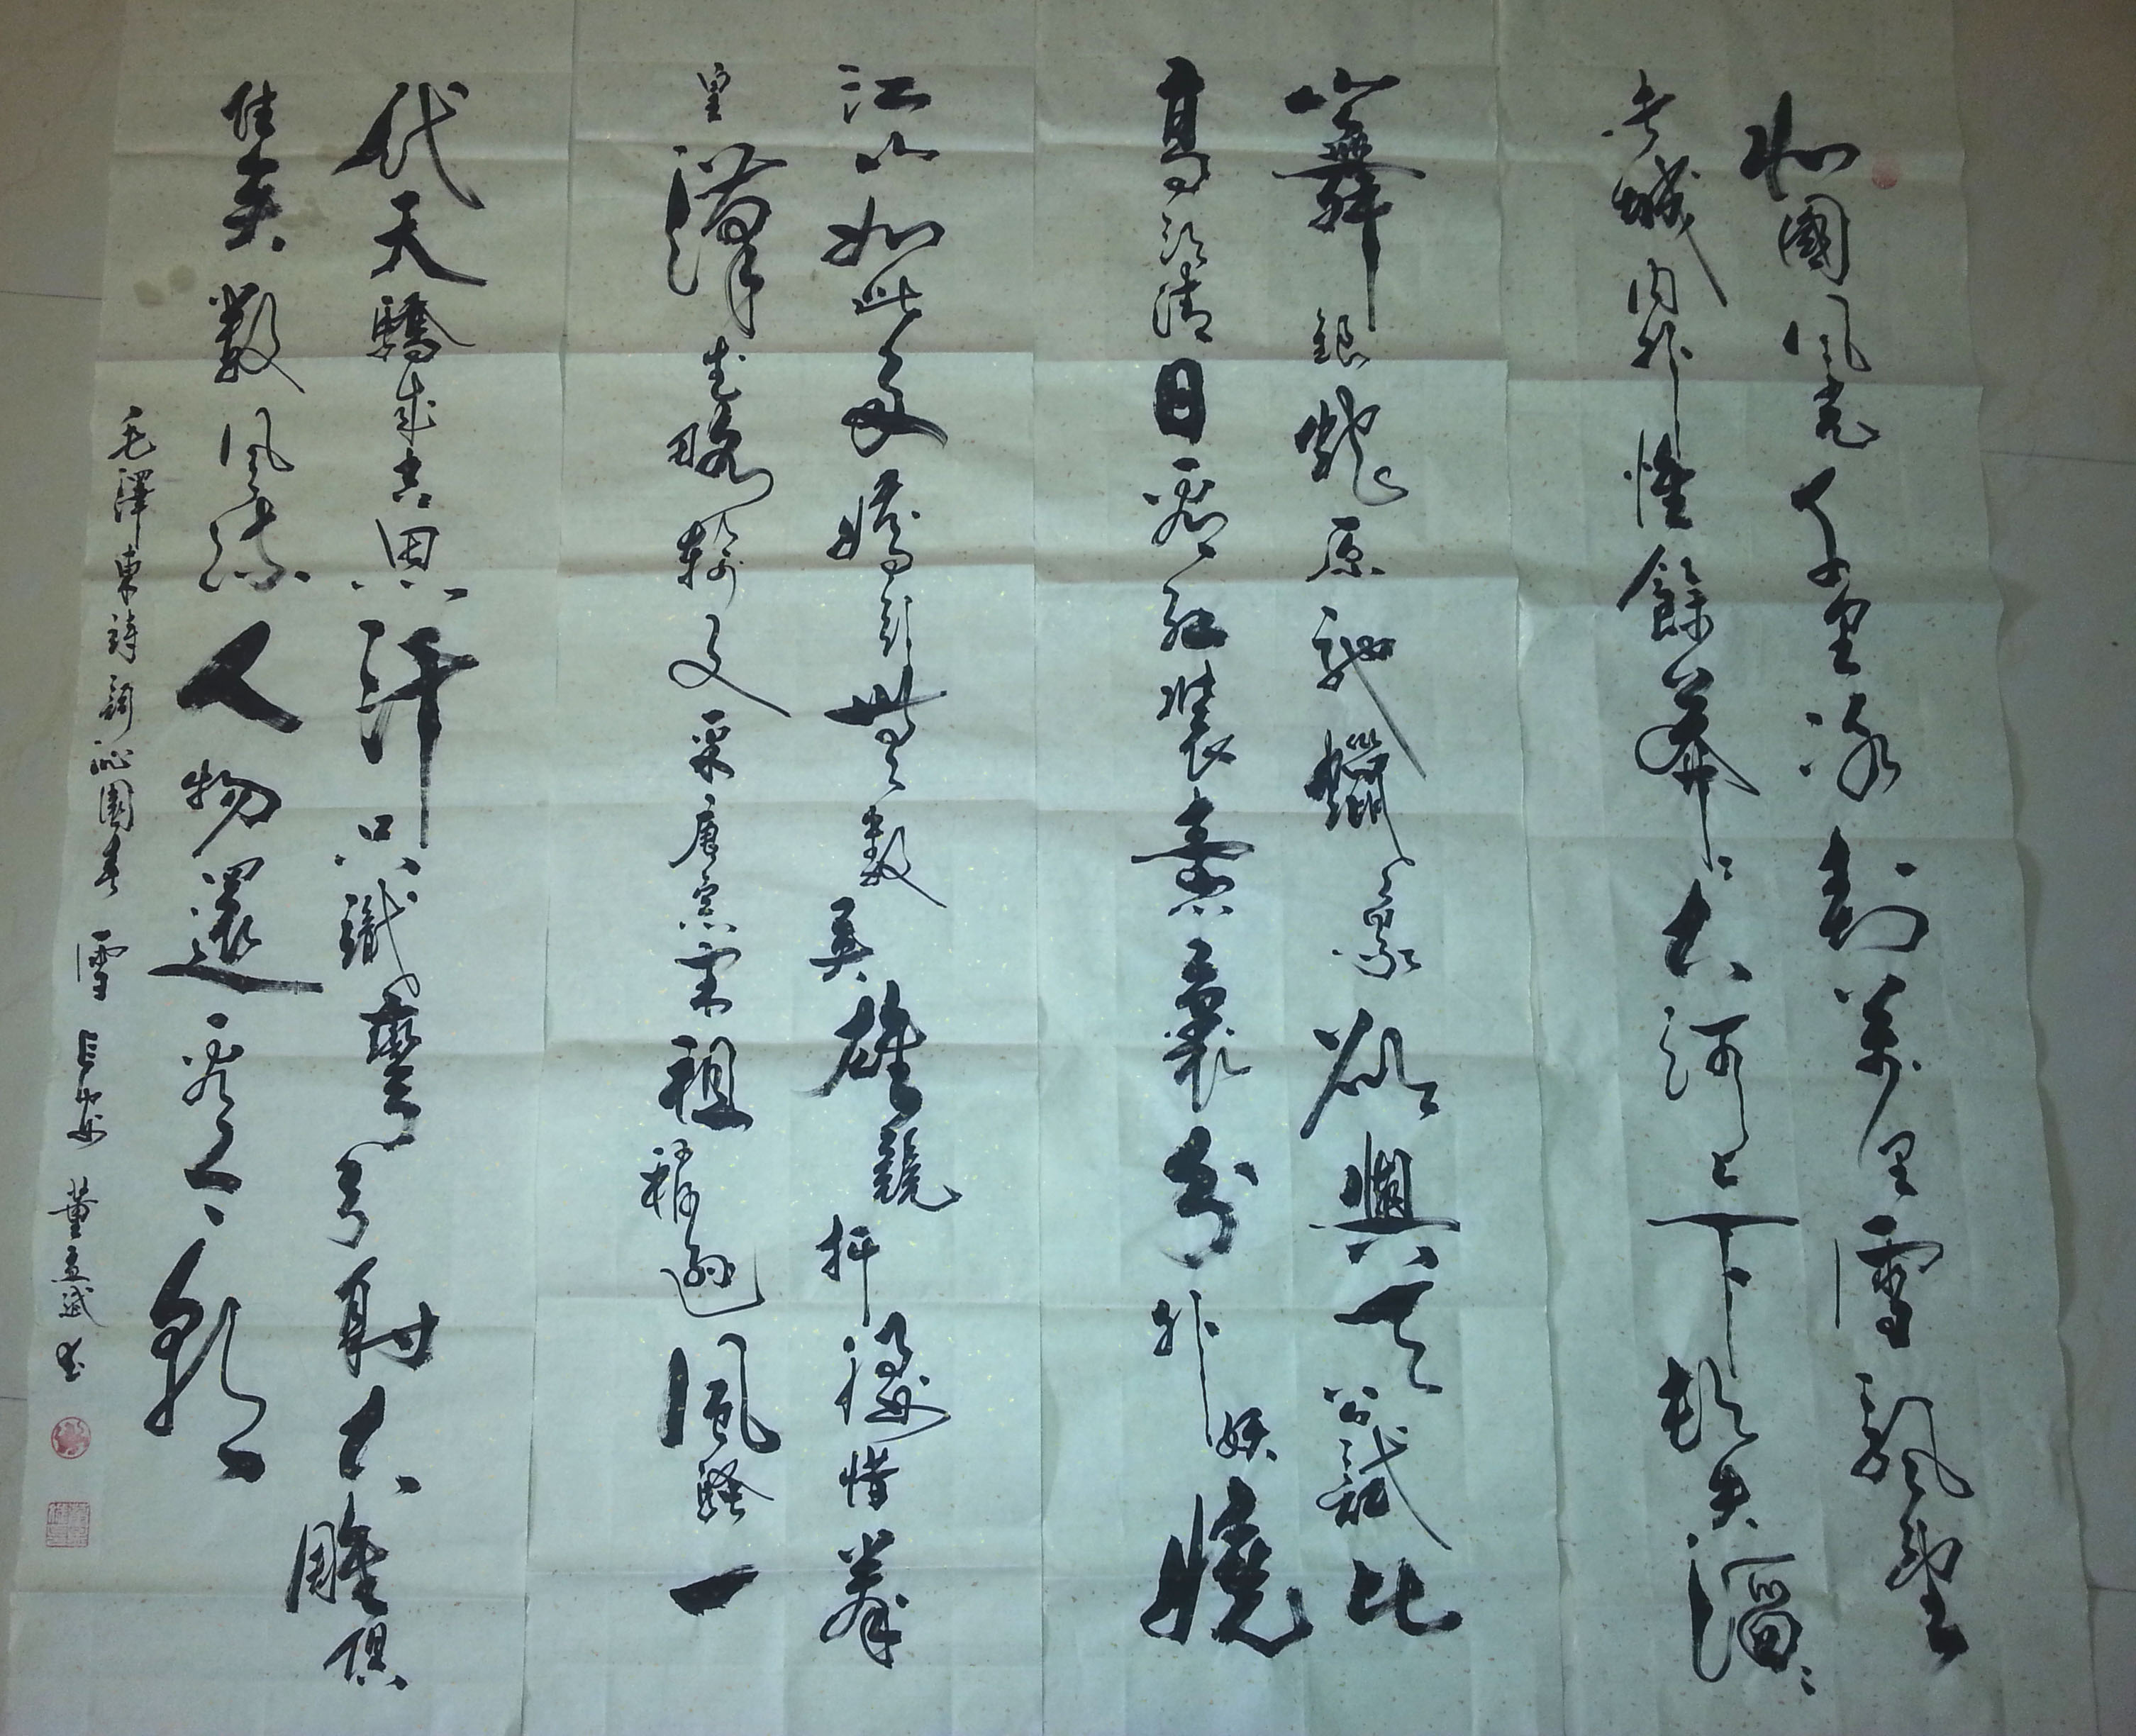 北國風光千里冰封萬里雪飄望
長城內外惟餘莽々大河上下頓失滔々
山舞銀蛇原馳蠟象欲與天公試比
高須清日看紅裝素裹分外妖嬈
江山如此多嬌引無數英雄競折腰惜秦
皇漢武略輸文采唐宗宋祖稍遜風騷一
代天驕成吉思汗只識彎弓射大雕俱
往矣數風流人物還看今朝
毛澤東詩詞沁園春 雪 長安 董書